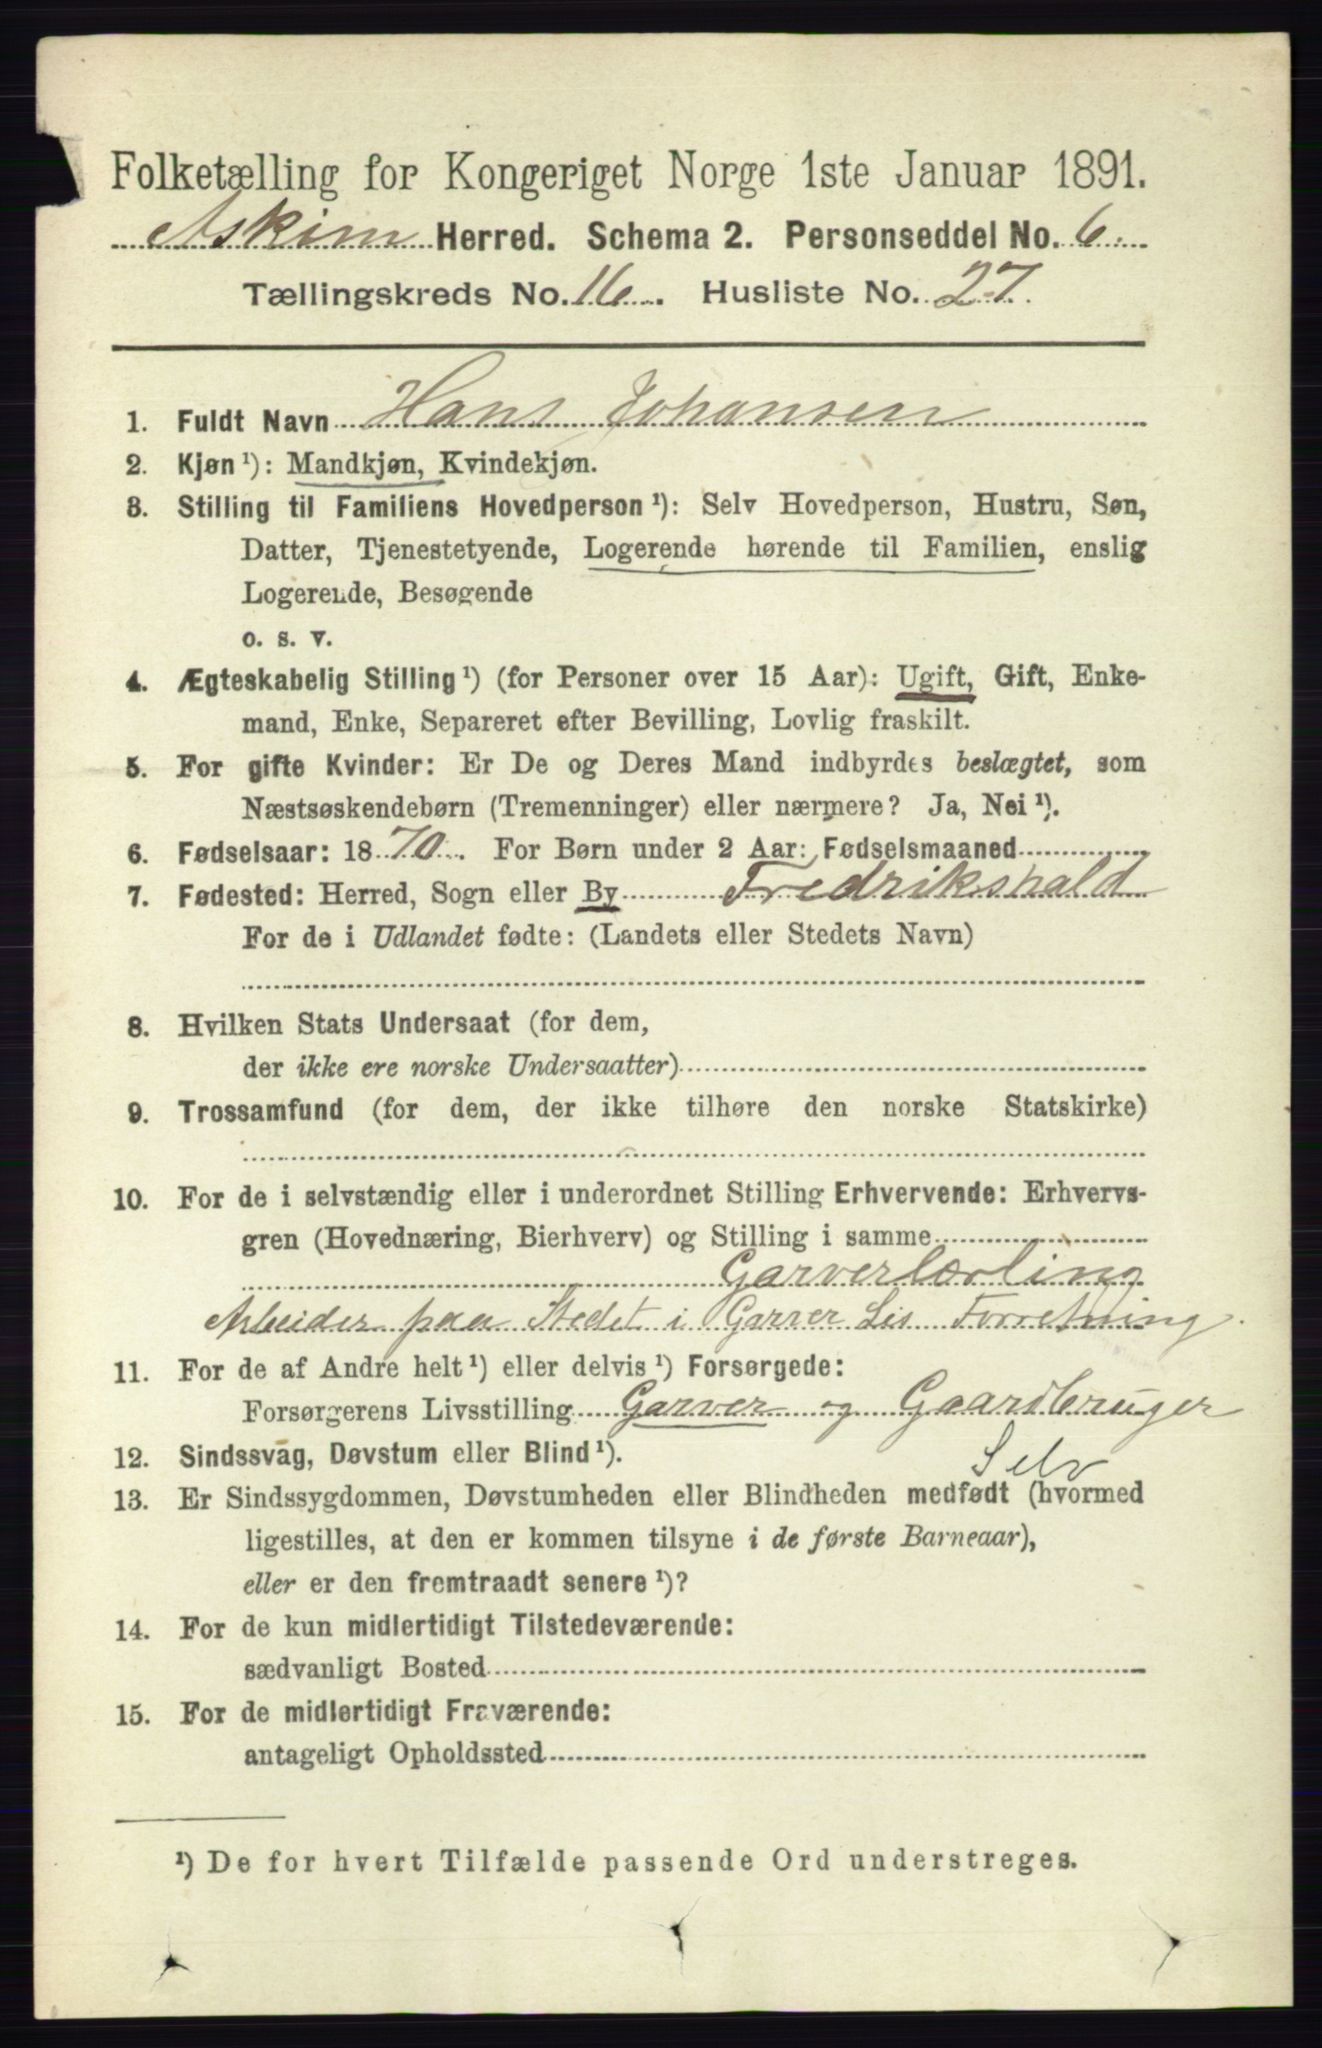 Folketælling for Kongeriget Norge 1ste Januar 1891.
Askim Herred. Schema 2. Personseddel No. 6.
Tællingskreds No. 16. Husliste No. 27.
1. Fuldt Navn Hans Johansen
2. Kjøn ¹): Mandkjøn, Kvindekjøn.
3. Stilling til Familiens Hovedperson ¹): Selv Hovedperson, Hustru, Søn,
Datter, Tjenestetyende, Logerende hørende til Familien, enslig
Logerende, Besøgende
o. s. v.
4. Ægteskabelig Stilling ¹) (for Personer over 15 Aar): Ugift, Gift, Enke-
mand, Enke, Separeret efter Bevilling, Lovlig fraskilt.
5. For gifte Kvinder: Er De og Deres Mand indbyrdes beslægtet, som
Næstsøskendebørn (Tremenninger) eller nærmere? Ja, Nei ¹).
6. Fødselsaar: 1870. For Børn under 2 Aar: Fødselsmaaned
7. Fødested: Herred, Sogn eller By Fredrikshald
For de i Udlandet fødte: (Landets eller Stedets Navn)
8. Hvilken Stats Undersaat (for dem,
der ikke ere norske Undersaatter)
9. Trossamfund (for dem, der ikke tilhøre den norske Statskirke)
10. For de i selvstændig eller i underordnet Stilling Erhvervende: Erhvervs-
gren (Hovednæring, Bierhverv) og Stilling i samme
Garverlærling
Arbeider paa Stedet i Garver Lis Forretning.
11. For de af Andre helt ¹) eller delvis ¹) Forsørgede:
Forsørgerens Livsstilling Garver og Gaardbruger
Selv
12. Sindssvag, Døvstum eller Blind ¹).
13. Er Sindssygdommen, Døvstumheden eller Blindheden medfødt (hvormed
ligestilles, at den er kommen tilsyne i de første Barneaar),
eller er den fremtraadt senere ¹)?
14. For de kun midlertidigt Tilstedeværende:
sædvanligt Bosted
15. For de midlertidigt Fraværende:
antageligt Opholdssted
¹) De for hvert Tilfælde passende Ord understreges.